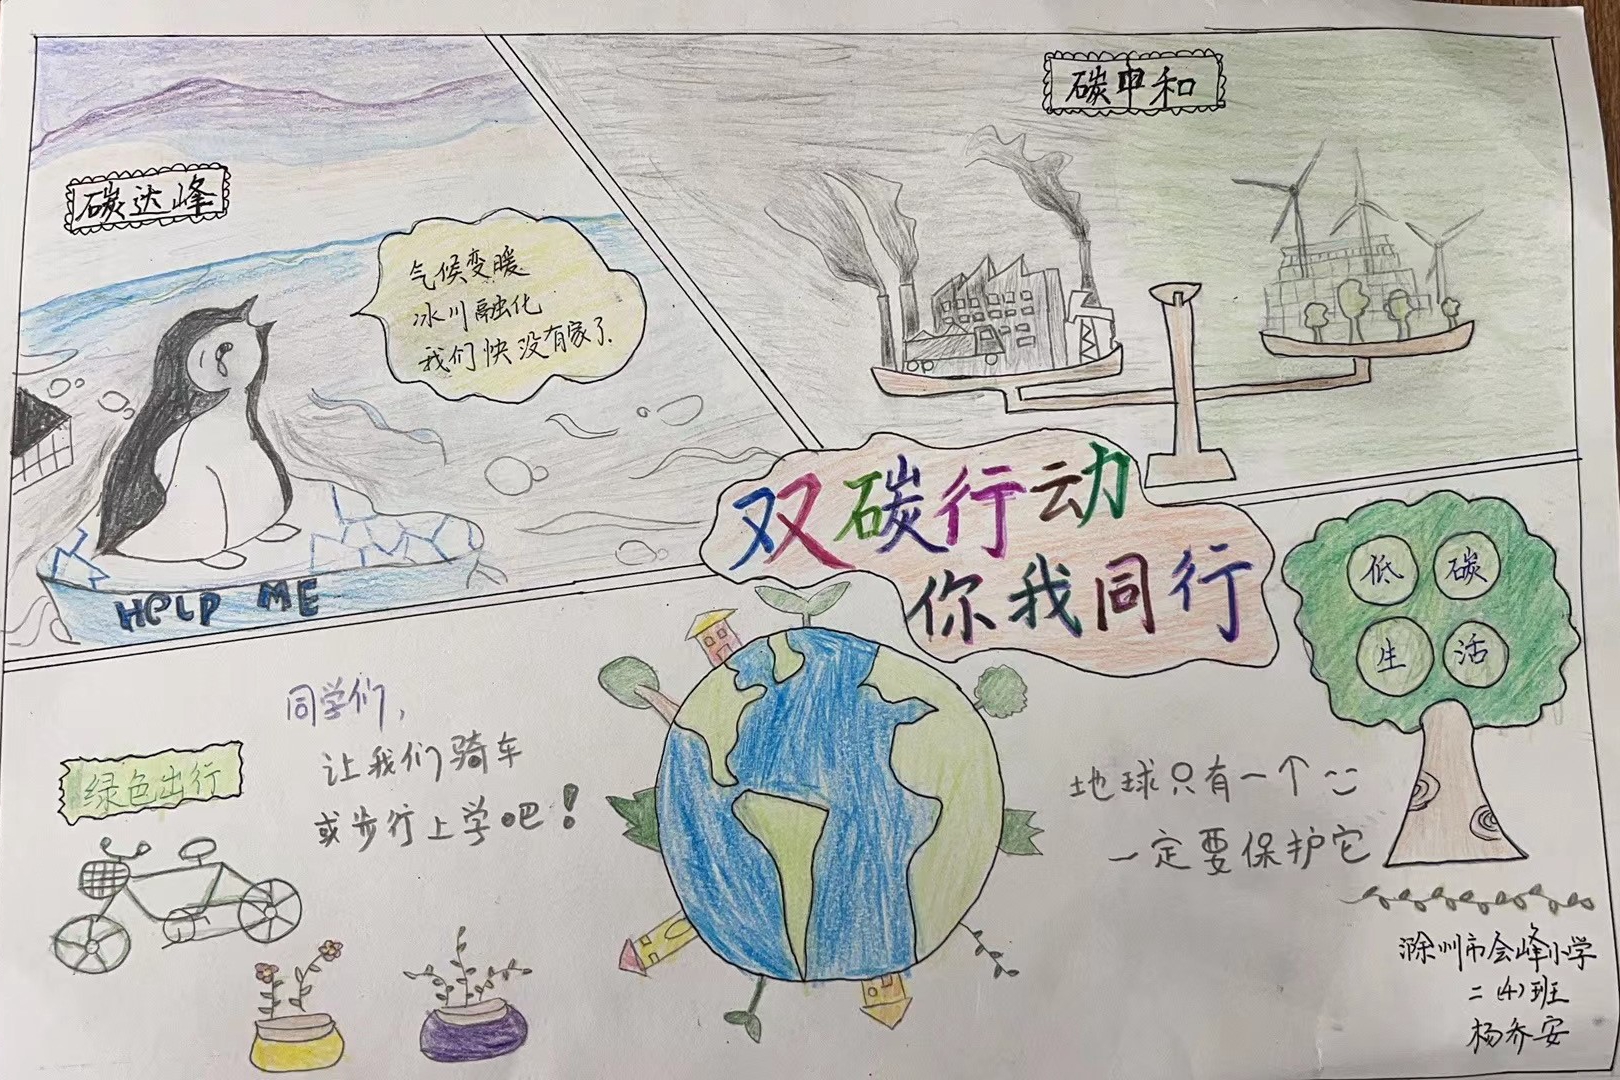 碳达峰
气候变暖
冰川融化
我们快没有家了.
HELP ME
碳中和
双碳行动
你我同行
低碳
生活
绿色出行
同学们,
让我们骑车
或步行上学吧!
地球只有一个
一定要保护它
滁州市会峰小学
二(4)班
杨乔安